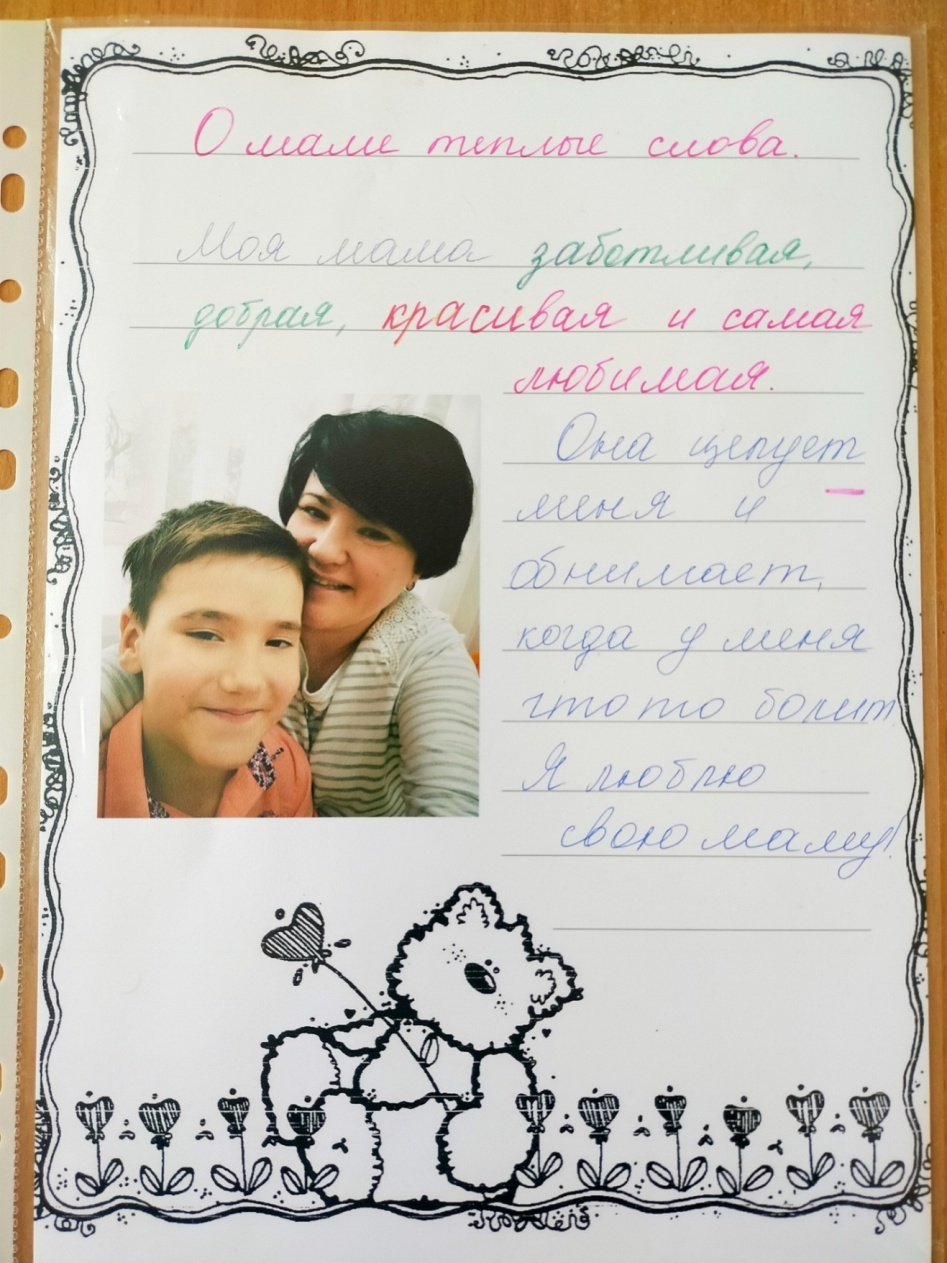 О маме теплые слова.
Моя мама заботливая,
добрая, красивая и самая
любимая.
Она целует
меня и
обнимает,
когда у меня
что то болит
Я люблю
свою маму!